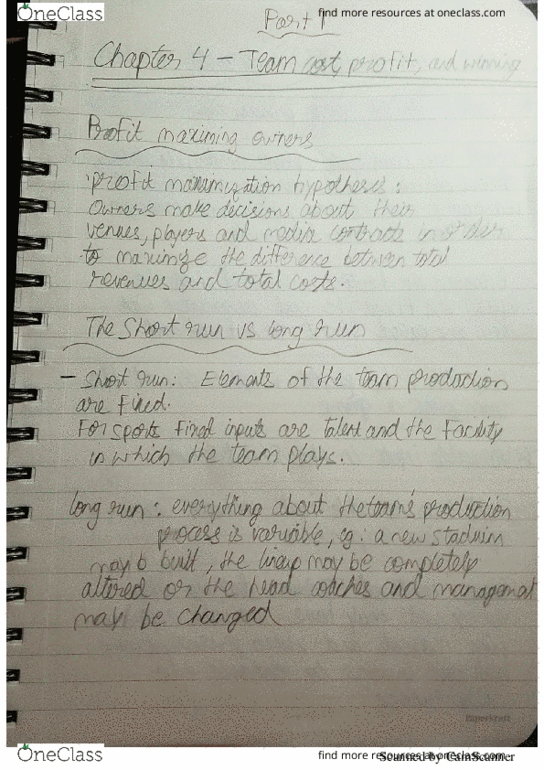 OneClass
find more resources at oneclass.com
Part 1
Chapter 4 - Team cost, profit, and winning
Profit maximing owners
profit maximization hypothesis :
Owners make decisions about their
venues, players and media contracts in order
to maximize the difference between total
revenues and total costs.
The Short run vs long run
- Short run: Elements of the team production
are fixed.
For sports fixed inputs are talent and the facility
in which the team plays.
long run : everything about the team's production
process is variable, eg: a new stadium
may b built, the lineup may be completely
altered or the head coaches and managemat
may be changed
OneClass
find more resources at oneclass.com
Scanned by CamScanner